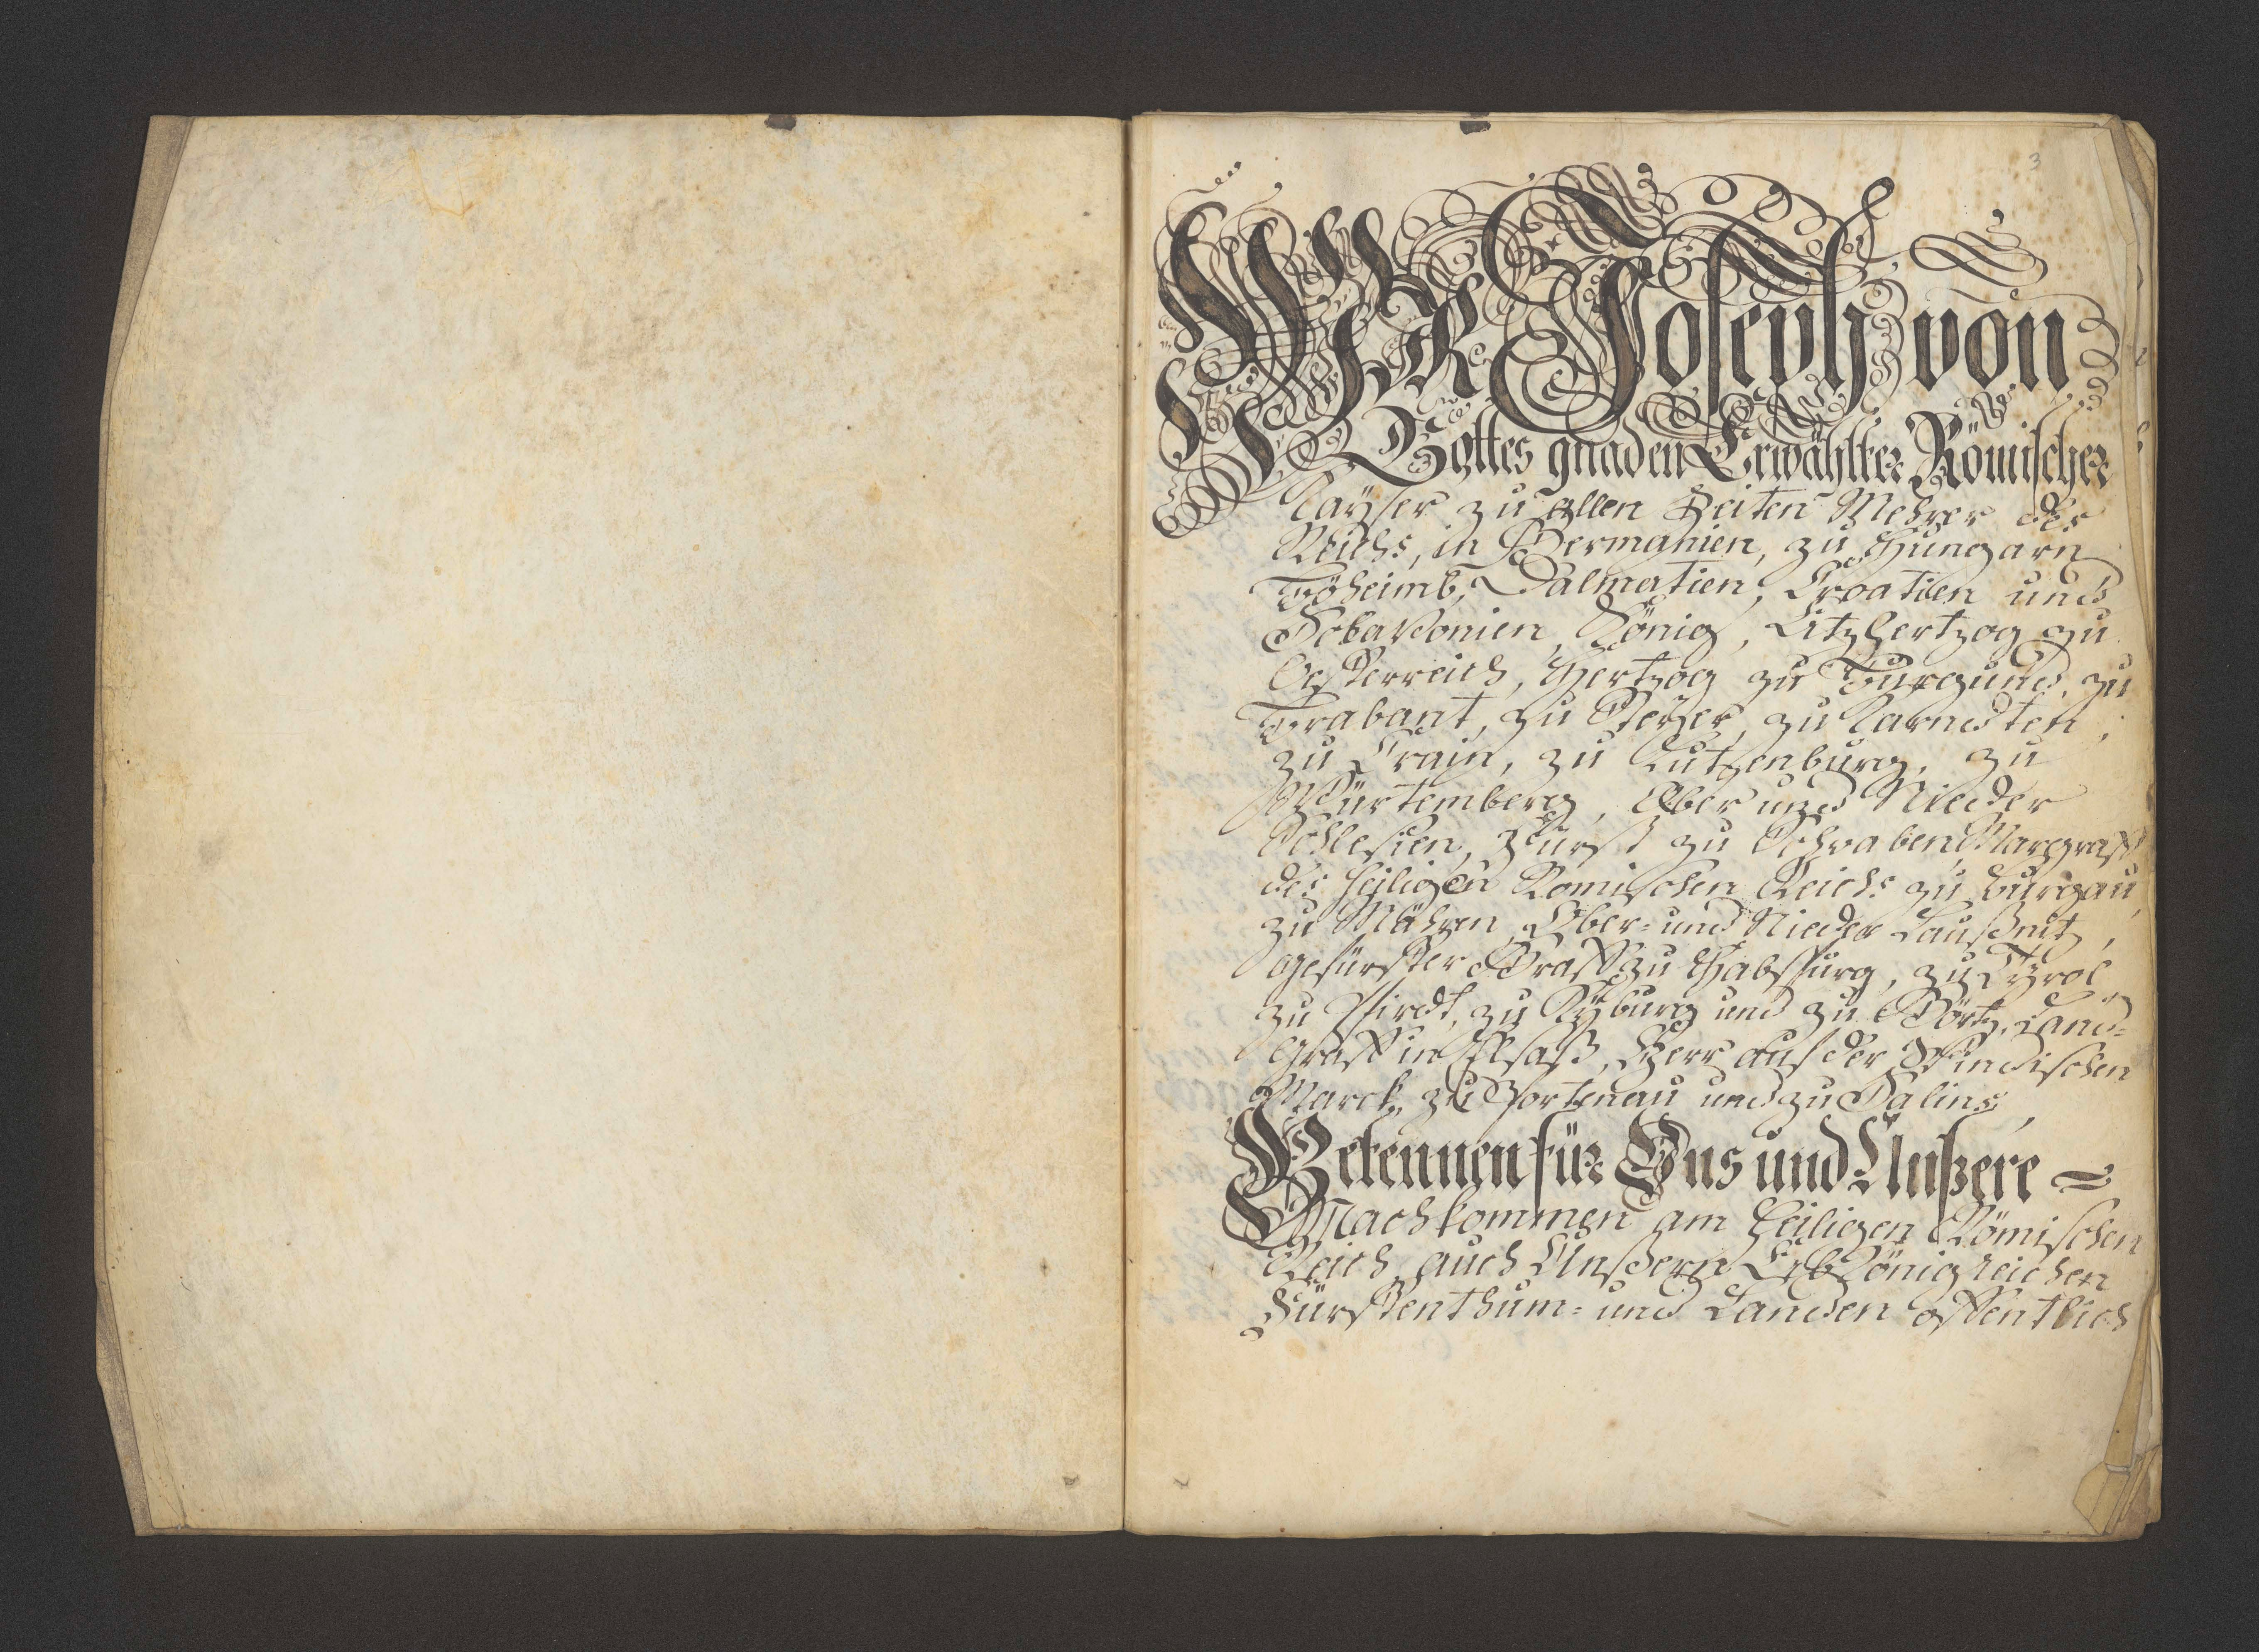 3
WIR Joseph von
Gottes gnaden Erwählter Römischer
Kaÿser zu allen Zeiten Mehrer des
Reichs, in Germanien, zu Hungarn
Böheimb, Dalmatien, Croatien und
Sclavonien, König, Ertzhertzog zu
Oesterreich, Hertzog zu Burgund, zu
Brabant, zu Steÿer, zu Karndten,
zu Crain, zu Lutzenburg, zu
Würtemberg, Ober und Nieder
Schlesien, Fürst zu Schwaben, Marggraff
des heiligen Römischen Reichs zu Burgau,
zu Mähren, Ober- und Nieder Laußnitz,
gefürster Graff zu Habspurg, zu Tÿrol
zu Pfirdt, zu Kÿburg und zu Görtz, Land-
graff in Elsaß, Herr auf der Windischen
Marck, zu Portenau und zu Salins,
Bekennen für Uns und Unßere
Nachkommen am Heiligen Römischen
Reich, auch Unßern Erb Königreichen
Fürstenthum- und Landen offentlich